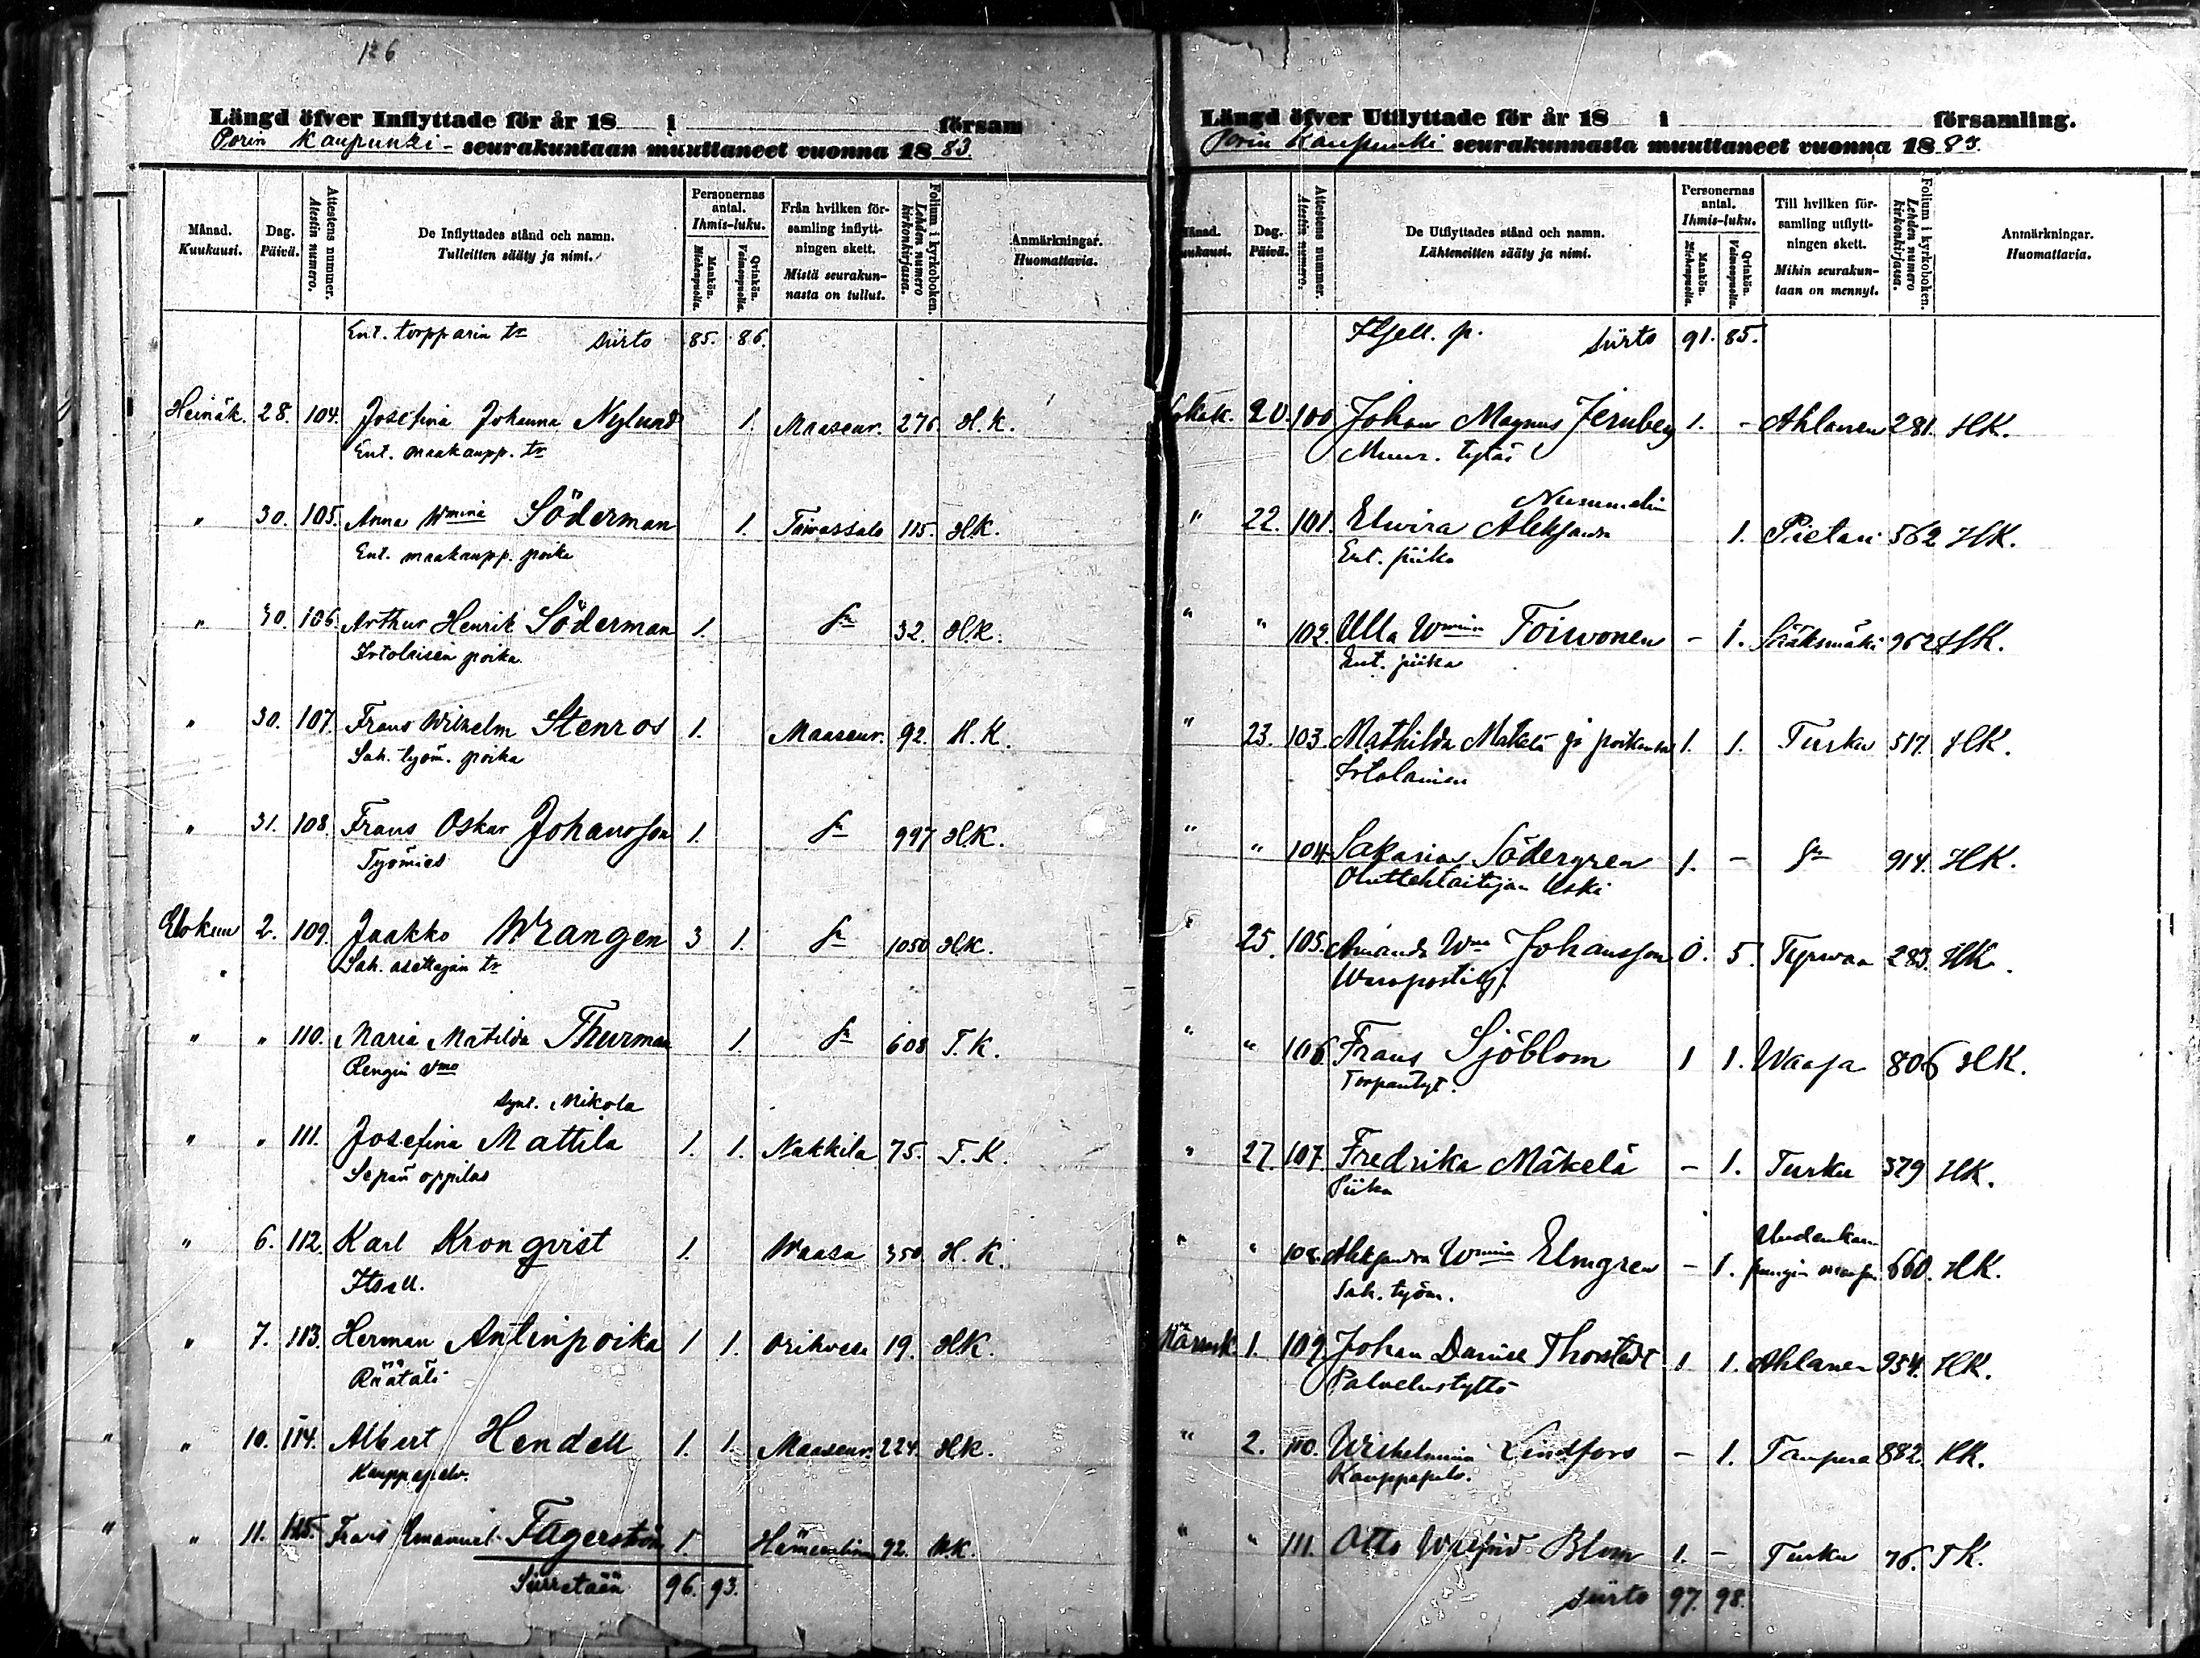 126
Längd öfver Inflyttade för år 18 i försam
Porin kaupunki - seurakuntaan muuttaneet vuonna 1883.
Månad. Kuukausi.
Dag. Päivä.
Attestens nummer. Atestin numero.
De Inflyttades stånd och namn. Tulleitten sääty ja nimi.
Personernas antal. Ihmis-luku.
Mankön. Miehenpuolia.
Qvinkön. Vaimonpuolia.
Från hvilken församling inflyttningen skett. Mistä seurakunnasta on tullut.
Folium i kyrkoboken. Lehden numero kirkonkirjassa.
Anmärkningar. Huomattavia.
Ent. torpparin tr siirto 85. 86.
Heinäk. 28. 104. Josefina Johanna Nylund 1. Maaseur. 276. H.K.
Ent. maakaupp. tr
" 30. 105. Anna Wmina Söderman 1. Taivassalo 115. H.K.
Ent. maakaupp. poika
" 30. 106. Arthur Henrik Söderman 1. 32. H.K.
Irtolaisen poika
" 30. 107. Frans Wilhelm Stenros 1. Maaseur. 92. H.K.
Sah. työm. poika
" 31. 108. Frans Oskar Johansson 1. 997 H.K.
Työmies
Elokuu 2. 109. Jaakko Wrangen 3 1. 1050 H.K.
" Sah. asettajan tr
" " 110. Maria Matilda Thurman 1. 608 T.K.
Rengin vmo
synt. Mikola
" " 111. Josefina Mattila 1. 1. Nakkila 75. T.K.
Sepän oppilas
" 6. 112. Karl Kronqvist 1. Waasa 350. H.K.
Itsell.
" 7. 113. Herman Antinpoika 1 1. Orihvesi 19. H.K.
Räätäli
" 10. 114. Albert Hendell 1. 1. Maaseur. 224. H.K.
Kauppapalv.
" 11. 115. Frans Emanuel Fagerström 1. Hämeenlinna 92. H.K.
Siirretään 96. 93.
Längd öfver Utflyttade för år 18 i församling.
Porin Kaupunki seurakunnasta muuttaneet vuonna 1883.
Månad. Kuukausi.
Dag. Päivä.
Attestens nummer. Atestin numero.
De Utflyttades stånd och namn. Lähteneitten sääty ja nimi.
Personernas antal. Ihmis-luku.
Mankön. Miehenpuolia.
Qvinkön. Vaimonpuolia.
Till hvilken församling utflyttningen skett. Mihin seurakuntaan on mennyt.
Folium i kyrkoboken. Lehden numero kirkonkirjassa.
Anmärkningar. Huomattavia.
Itsell. p. siirto 91. 85.
Lokak. 20. 100 Johan Magnus Jernberg 1. - Ahlainen 281. HK.
Muur. tytär
Nummelin
" 22. 101. Elvira Aleksandra 1. Pietari 562 HK.
Ent. piika
" " 102. Ulla Wmina Toiwonen - 1. Sääksmäki 962 HK.
Ent. piika
" 23. 103. Mathilda Makala ja poikansa 1. 1. Turku 517. HK.
Irtolainen
" " 104. Sakarias Södergren 1. - 914. HK.
Oluttehtailijan leski
" 25. 105. Amanda Wma Johansson 0. 5. Tyrwää 283. HK.
" " 106 Frans Sjöblom 1 1. Waasa 806 HK.
Torpantyt.
" 27. 107. Fredrika Mäkelä - 1. Turku 379 HK.
Piika
Uudenkau
" " 108. Aleksandra Wmina Elmgren - 1. pungin 660. HK.
Sah. työm.
Marrask. 1. 109. Johan Daniel Thorstedt 1 1. Ahlainen 954. HK.
Palvelustyttö
" 2. 110. Wilhelmina Lindfors - 1. Tampere 882. HK.
Kauppapalv.
" " 111. Otto Wilfrid Blom 1. - Turku 76. T.K.
siirto 97. 98.